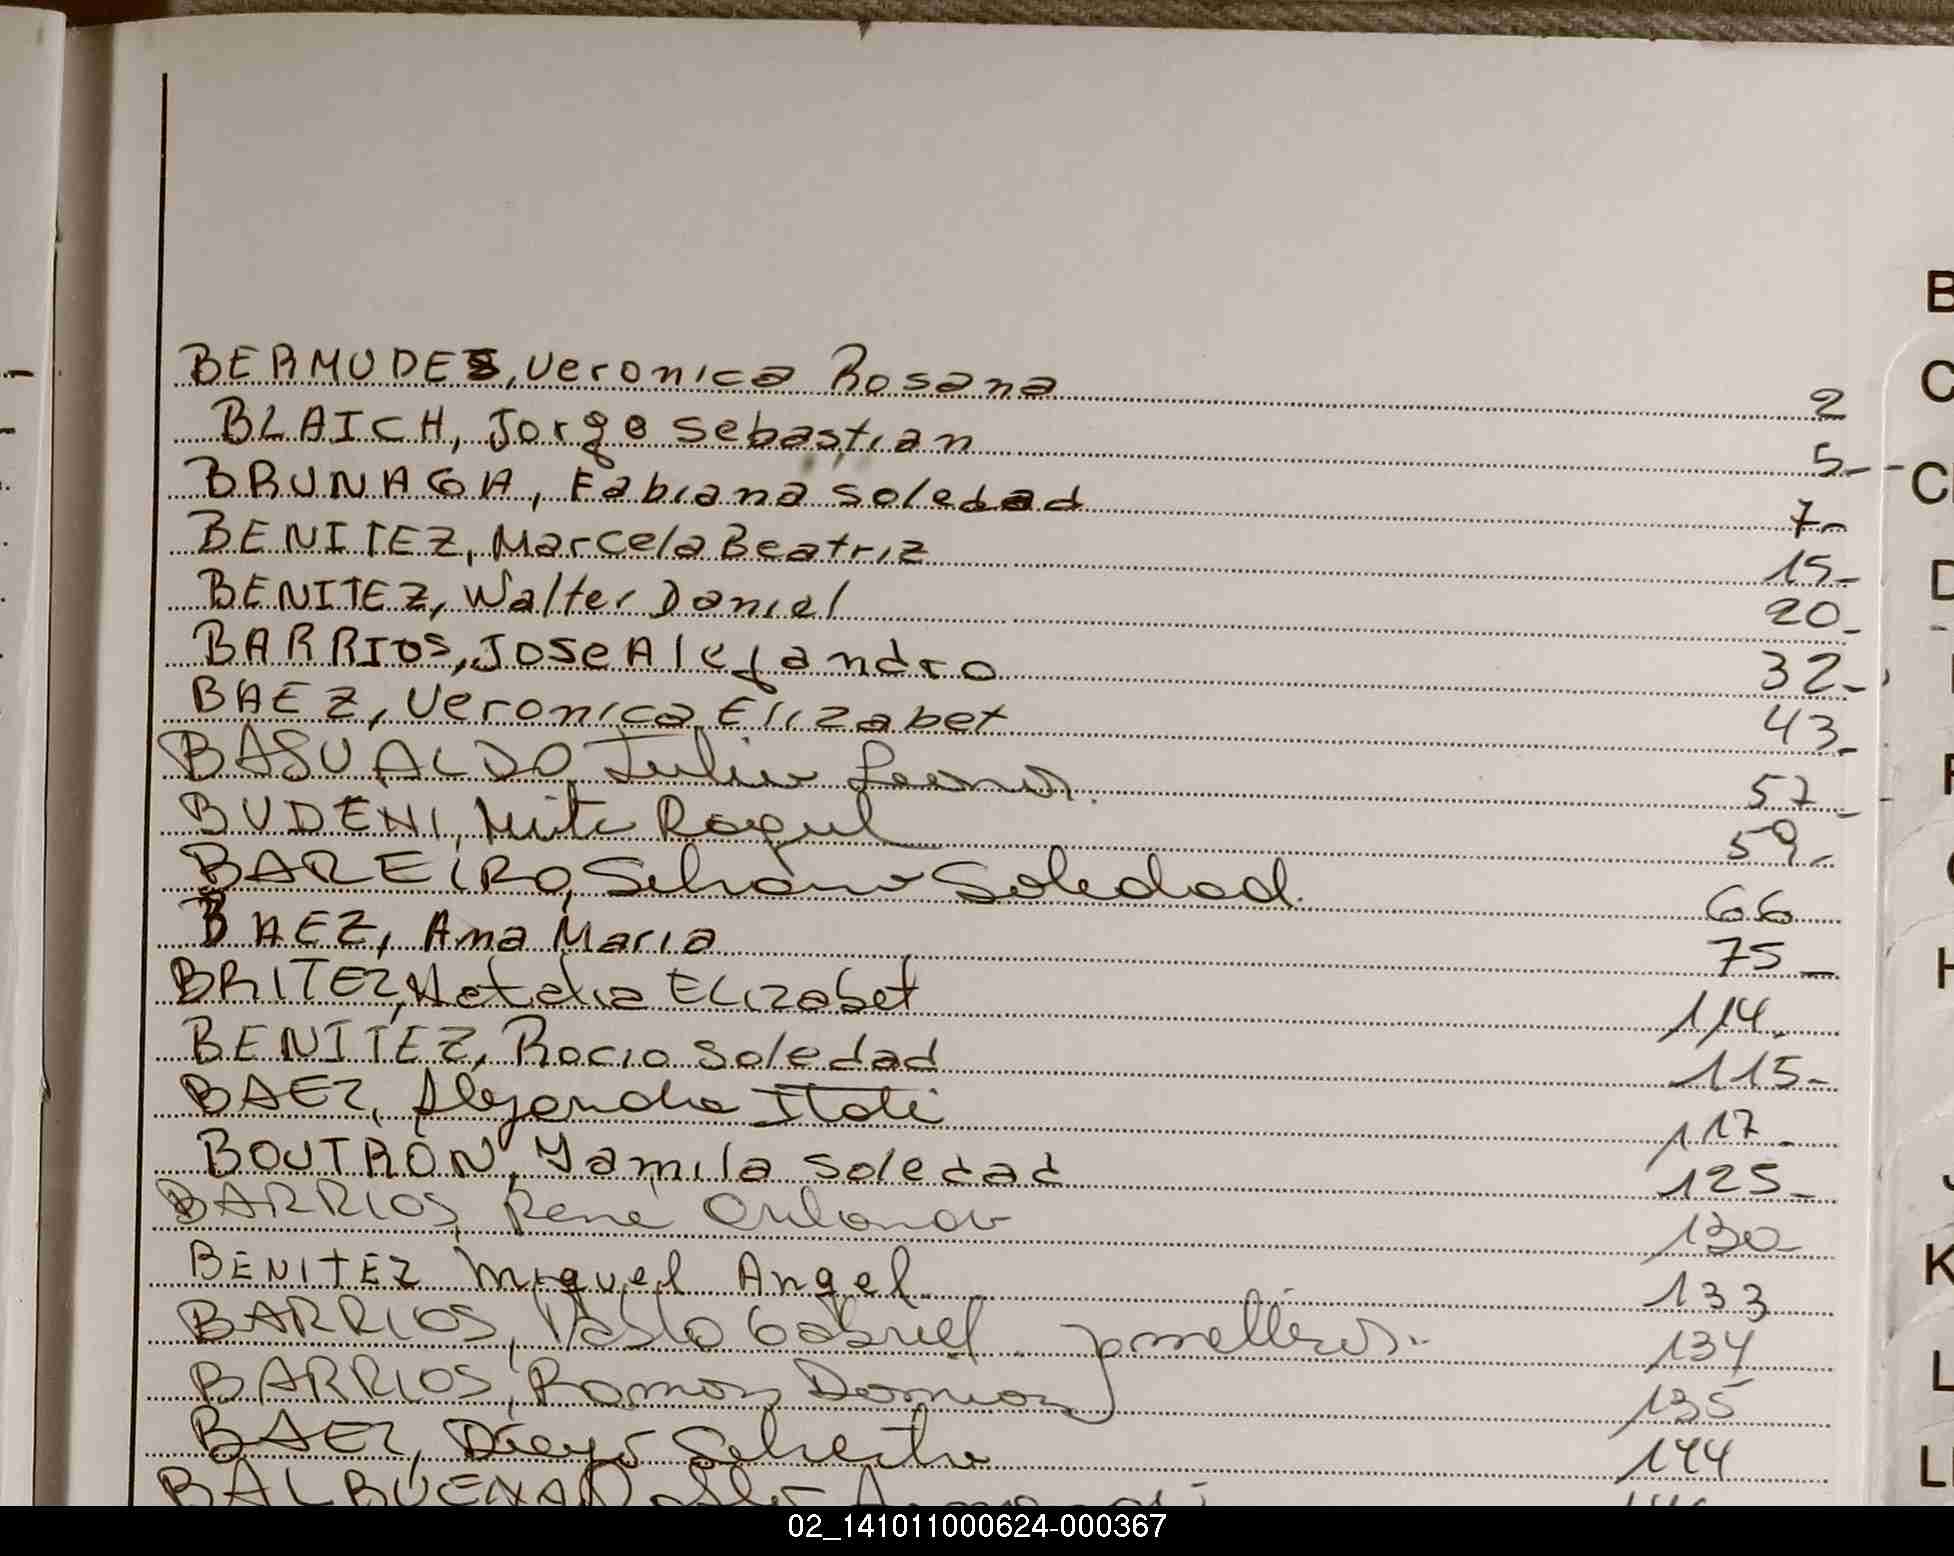 BERMUDES, Veronica Rosana 2
BLAICH, Jorge Sebastian 5-
BRUNAGA, Fabiana Soledad 7-
BENITEZ, Marcela Beatriz 15-
BENITEZ, Walter Daniel 20-
BARRIOS, Jose Alejandro 32-
BAEZ, Veronica Elizabet 43-
BASUALDO 57-
BUDENI, Raquel 59-
BAREIRO, Soledad. 66
BAEZ, Ana Maria 75-
BRITEZ, Natalia Elizabet 114-
BENITEZ, Rocio Soledad 115-
BAEZ, Alejandra Itati 117-
BOUTRON, Yamila Soledad 125-
BARRIOS, Rene Orlando 130-
BENITEZ Miguel Angel. 133
BARRIOS, Pablo Gabriel 134
BARRIOS, Ramon Damian 135
BAEZ, Diego 144
BALBUENA
B
C
D
H
K
02_141011000624-000367